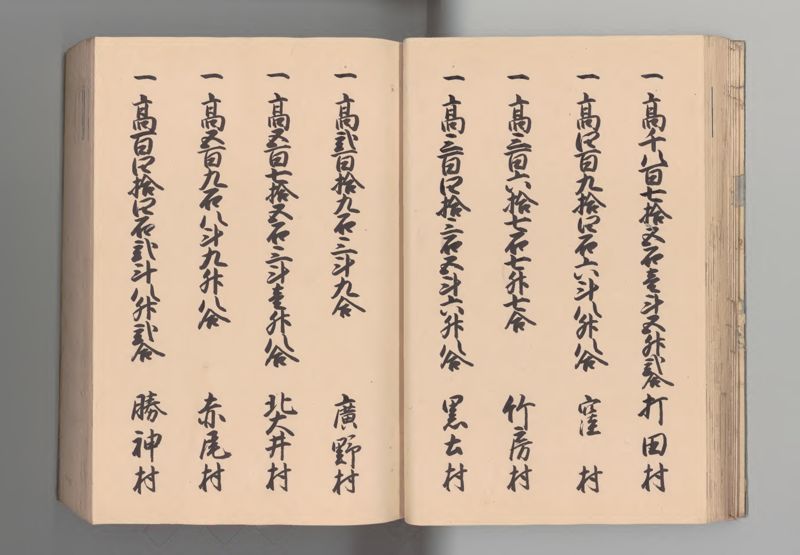 一 高千八百七拾五石壹斗五升弐合 打田村
一 高四百九拾四石六斗八升八合 窪村
一 高三百六拾七石七升七合 竹房村
一 高三百四拾三石五斗六升八合 黒土村
一 高弐百拾九石三斗九合 廣野村
一 高五百七拾五石三斗壹升八合 北大井村
一 高五百九石八斗九升八合 赤尾村
一 高百四拾四石弐斗八升弐合 勝神村